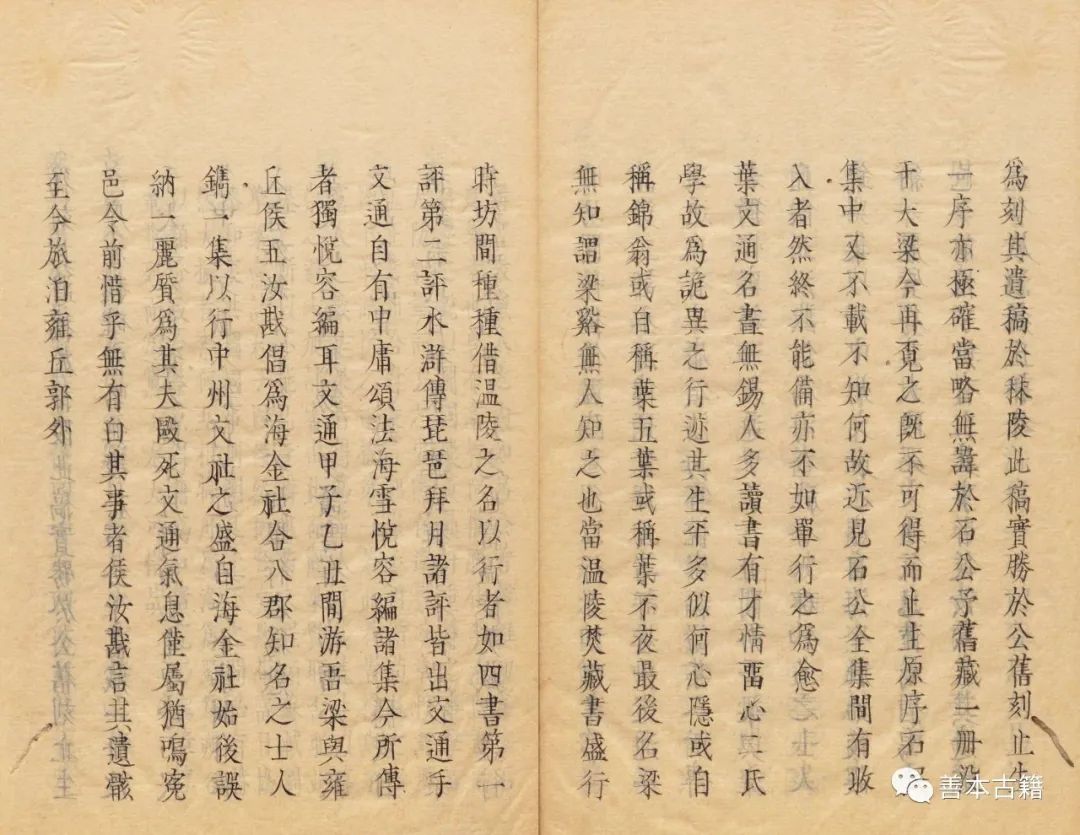 為刻其遺稿於秣陵此稿實勝於公舊刻止生
一序亦極確當略無諱於石公予舊藏一冊沒
于大梁今再覓之旣不可得而止生原序石
集中又不載不知何故近見石公全集間有收
入者然終不能備亦不如單行之為愈
葉文通名晝無錫人多讀書有才情畱心二氏
學故為詭異之行迹其生平多似何心隱或自
稱錦翁或自稱葉五葉或稱葉不夜最後名梁
無知謂梁谿無人知之也當温陵焚藏書盛行
時坊間種種借温陵之名以行者如四書第一
評第二評水滸傳琵琶拜月諸評皆出文通手
文通自有中庸頌法海雪悅容編諸集今所傳
者獨悅容編耳文通甲子乙丑間游吾梁與雍
丘侯五汝戡倡為海金社合八郡知名之士人
鐫一集以行中州文社之盛自海金社始後誤
納一麗質為其夫毆死文通氣息僅屬猶鳴寃
邑令前惜乎無有白其事者侯汝戡言其遺骸
至今旅泊雍丘郭外
善本古籍